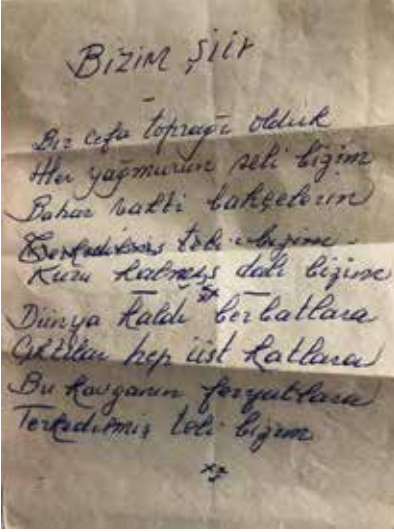 BİZİM ŞİİR
Biz cefa toprağı olduk
Her yağmurun seli bizim
Bahar vakti bahçelerin
Kuru kalmış dalı bizim
Dünya kaldı berbatlara
Çıktılar hep üst katlara
Bu kavganın feryatlara
Terkedilmiş teli bizim